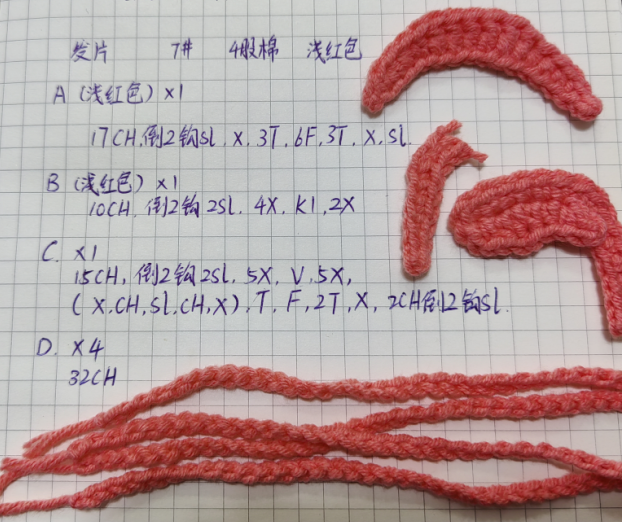 发片 7# 4股棉 浅红色
A (浅红色) ×1
17CH,倒2钩SL, X, 3T, 6F, 3T, X, SL.
B (浅红色) ×1
10CH, 倒2钩 2SL, 4X, K1, 2X
C. ×1
15CH, 倒2钩2SL, 5X, V, 5X,
( X, CH, SL, CH, X), T, F, 2T, X, 2CH倒2钩SL.
D. ×4
32CH